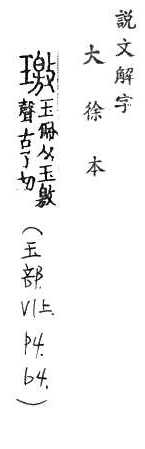 説文解字
大徐本
璬 玉佩从玉敫
聲古了切
(玉部.V1上.P4.b4.)